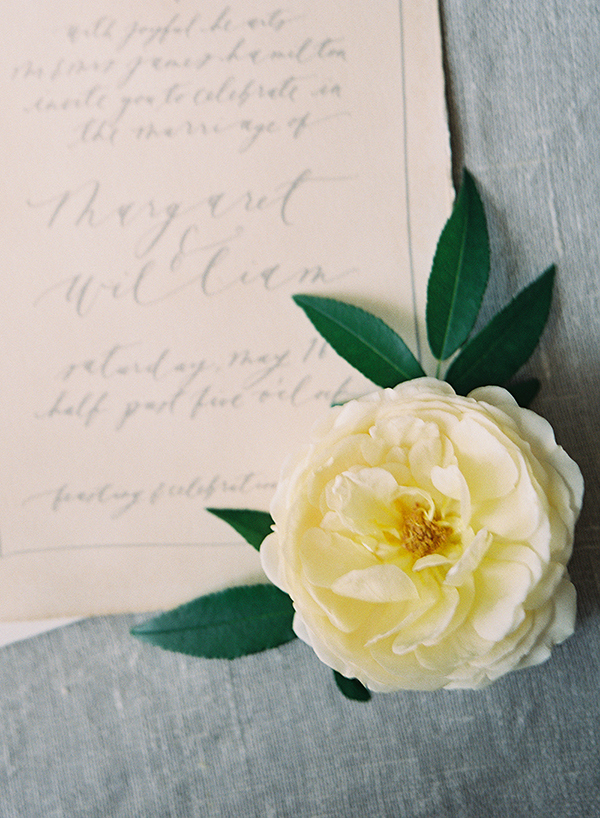 with joyful hearts
Mr & Mrs James Hamilton
invite you to celebrate in
the marriage of
Margaret
&
William
saturday, may
half past five o'clock
feasting & celebration